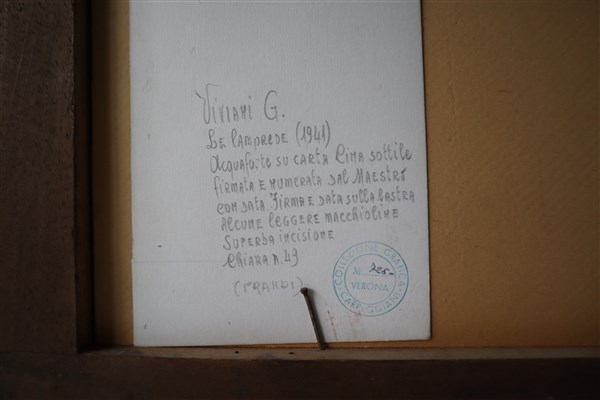 Viviani G.
Le lamprede (1941)
Acquaforte su carta Cina sottile
firmata e numerata dal Maestro
con data. Firma e data sulla lastra
Alcune leggere macchioline
Superba incisione
Chiara n. 49
(PRANDI)
COLLEZIONE GRAFICA
N.
VERONA
CAREGGIANI